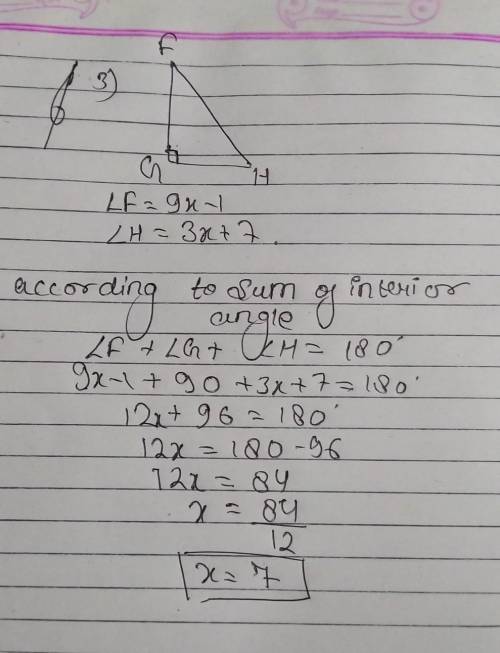 3)
F
G
H
∠F = 9x-1
∠H = 3x+7.
according to sum of interior
angle
∠F + ∠G + ∠H = 180°
9x-1 + 90 + 3x+7 = 180°
12x + 96 = 180°
12x = 180 - 96
12x = 84
x = 84
12
x = 7